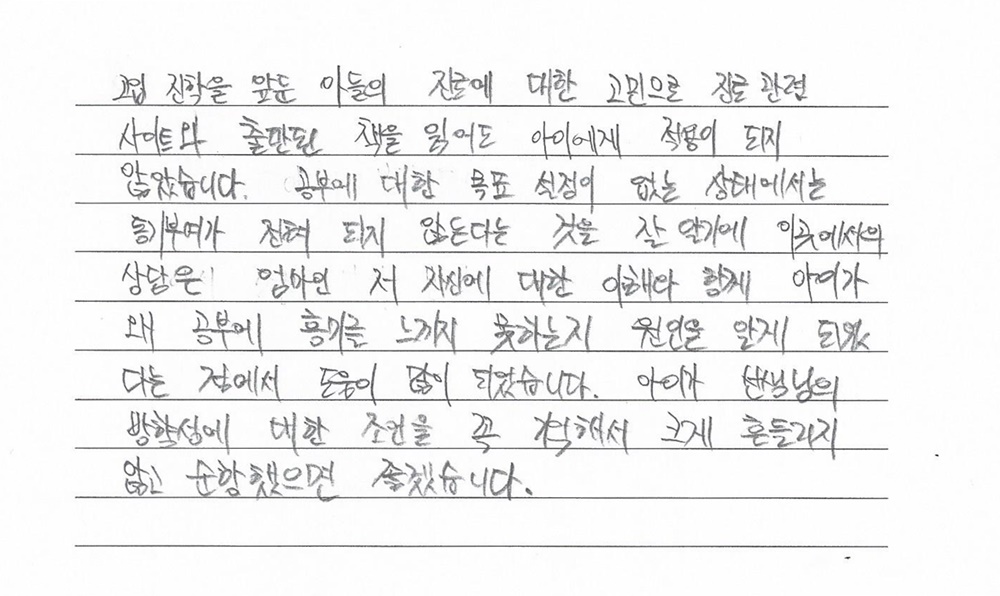 고입 진학을 앞둔 아들의 진로에 대한 고민으로 진로 관련
사이트와 출판된 책을 읽어도 아이에게 적용이 되지
않았습니다. 공부에 대한 목표 설정이 없는 상태에서는
동기부여가 전혀 되지 않는다는 것을 잘 알기에 이곳에서의
상담은 엄마인 저 자신에 대한 이해와 함께 아이가
왜 공부에 흥미를 느끼지 못하는지 원인을 알게 되었
다는 점에서 도움이 많이 되었습니다. 아이가 선생님의
방향성에 대한 조언을 꼭 기억해서 크게 흔들리지
않고 순항했으면 좋겠습니다.